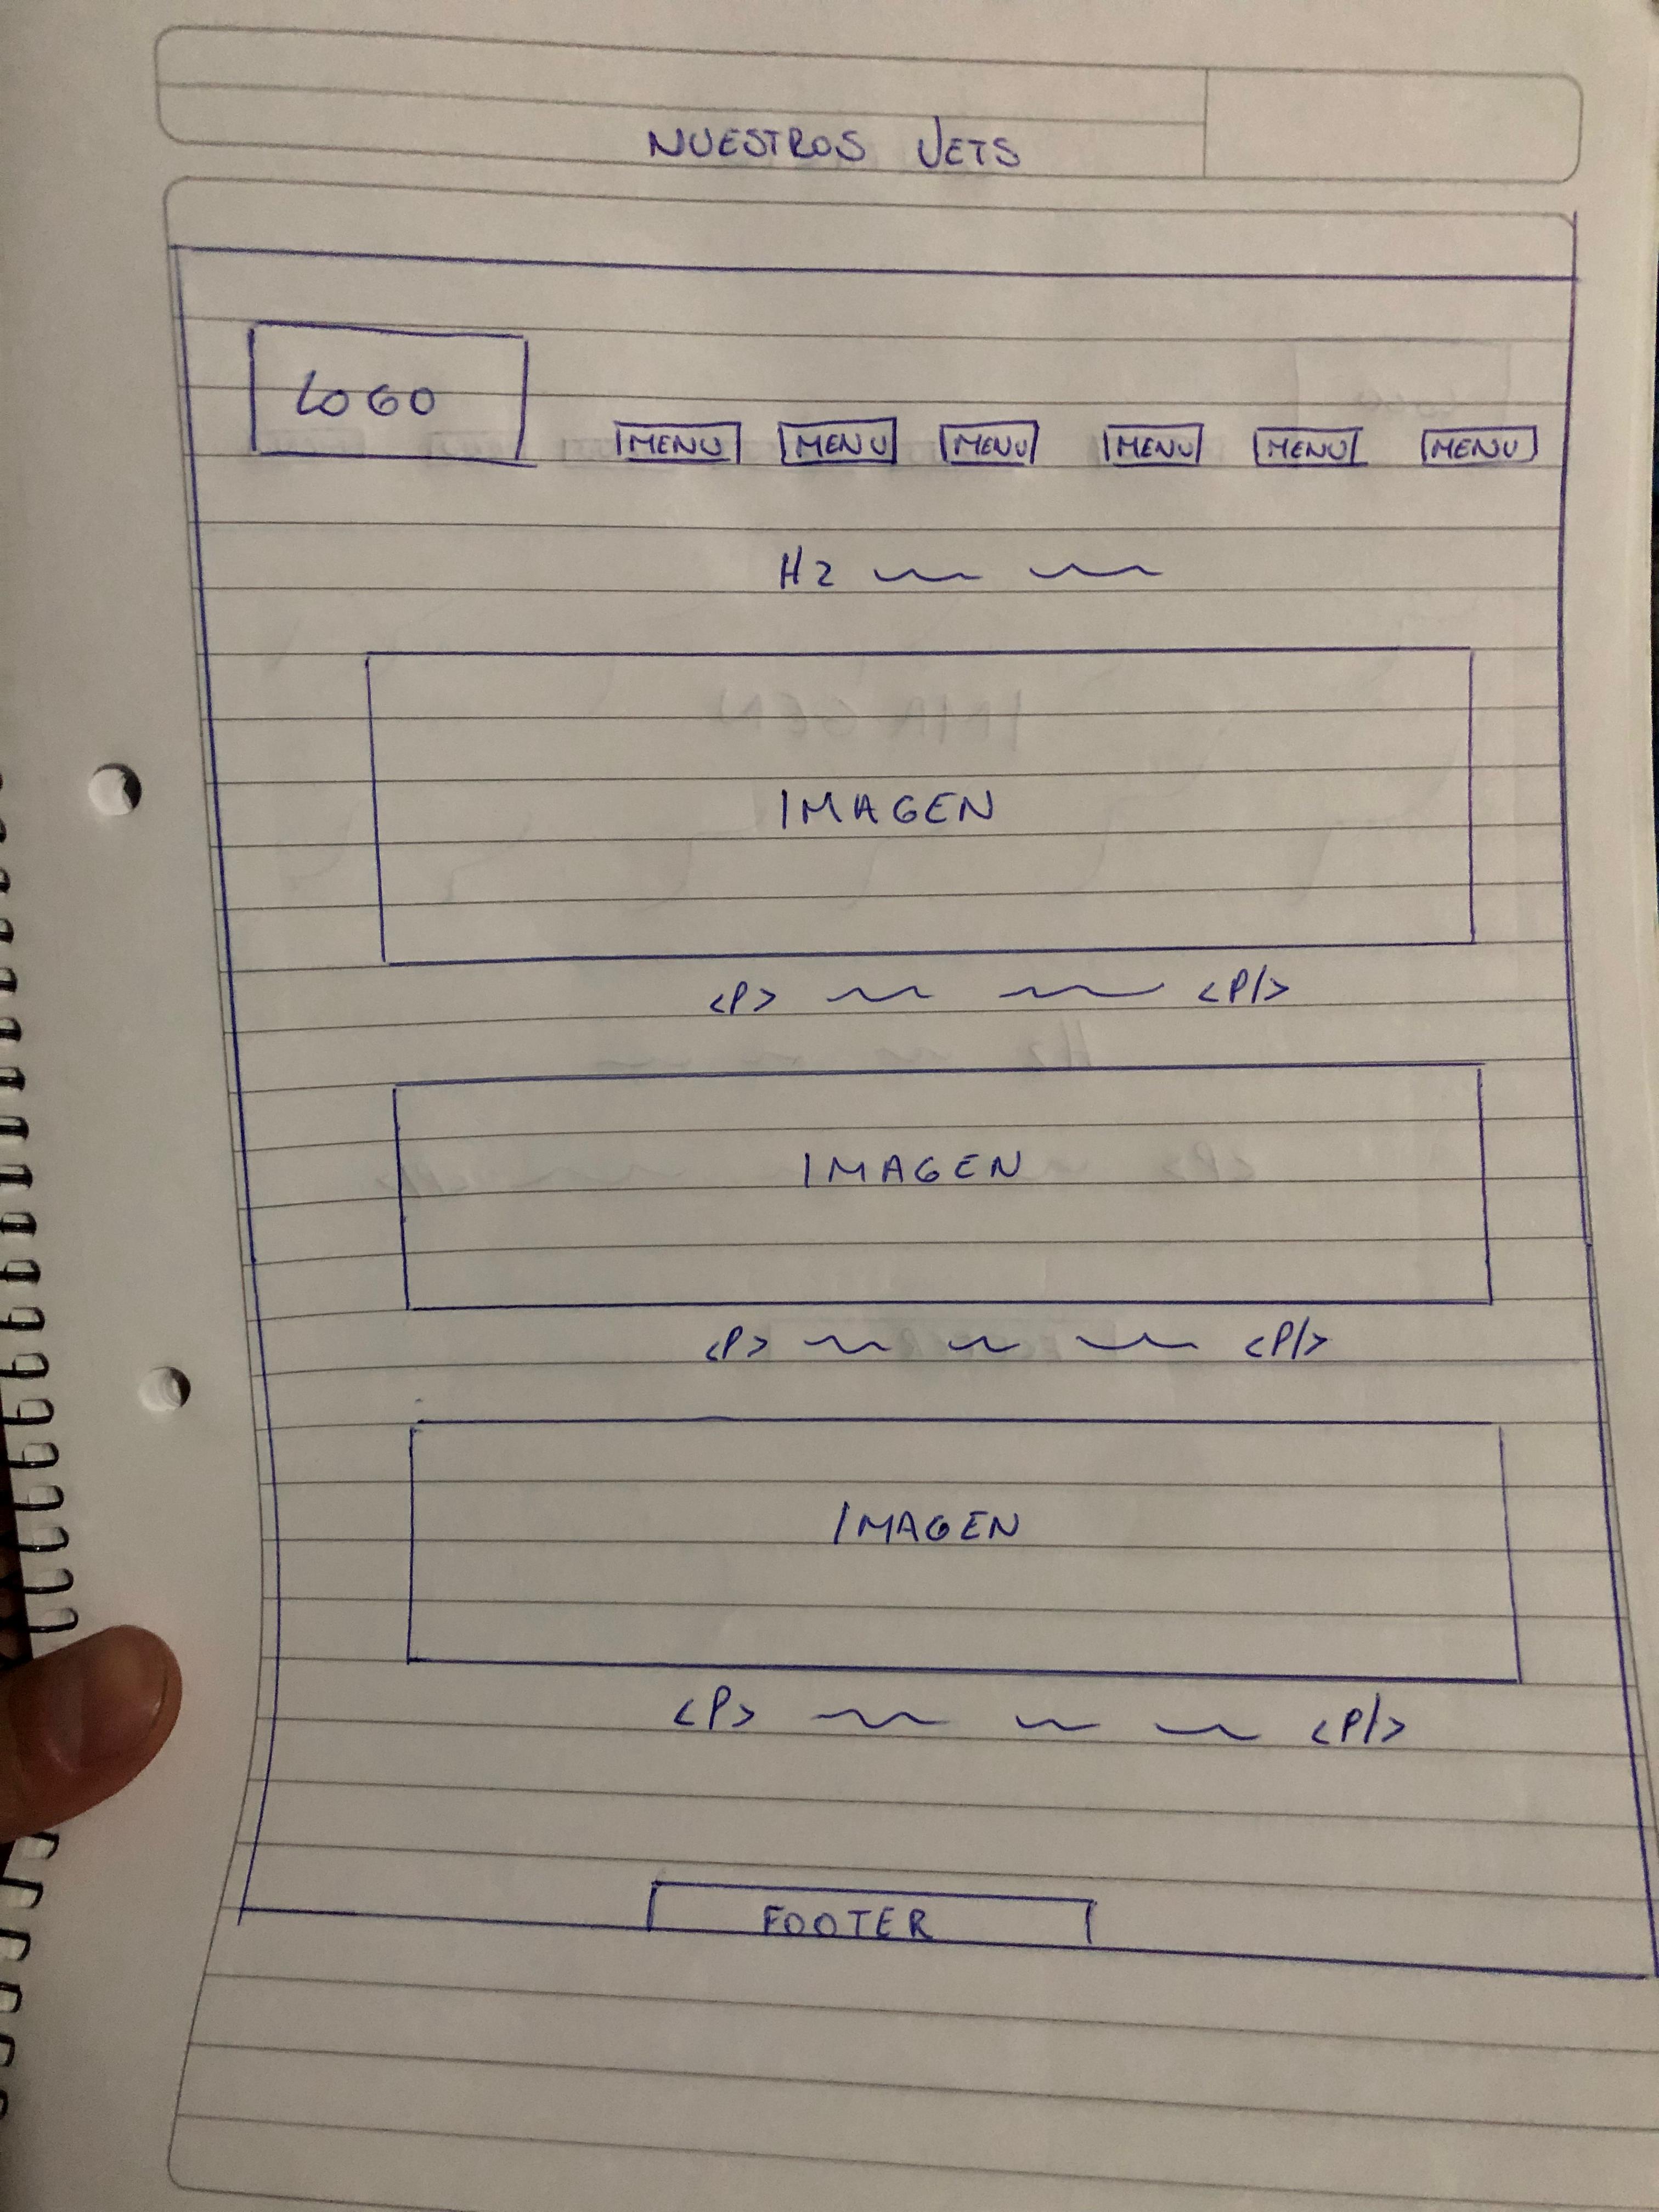 NUESTROS JETS
LOGO
MENU MENU MENU MENU MENU MENU
H2
IMAGEN
<P> <P/>
IMAGEN
<P> <P/>
IMAGEN
<P> <P/>
FOOTER